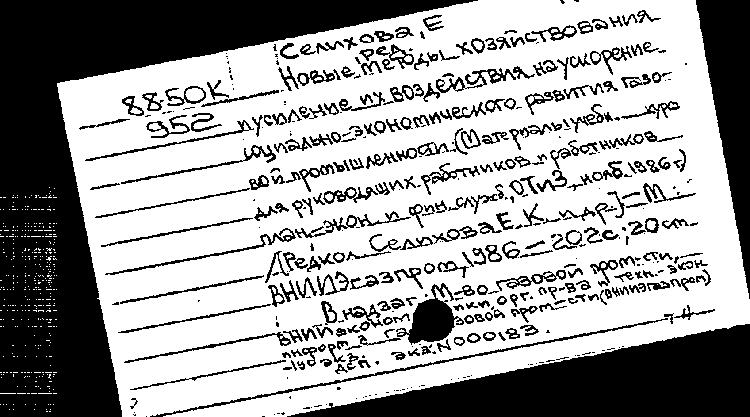 Селихова, Е
ред.
88-50К
952
Новые методы хозяйствования
и усиление их воздействия на ускорение
социально-экономического развития газо-
вой промышленности. (Материалы учебн. курс
для руководящих работников и работников
план.-экон. и фин. служб, ОТиЗ, нояб. 1986 г.)
/[Редкол. Селихова Е. К. и др.] = М.:
ВНИИЭгазпром, 1986 - 202с.; 20 см
В надзаг.: М-во газовой пром-сти,
ВНИИ эконом орг. пр-ва и техн.-экон
информ. в газовой пром-сти (ВНИИЭгазпром)
-190 экз.
деп. экз. N000183.
7-4